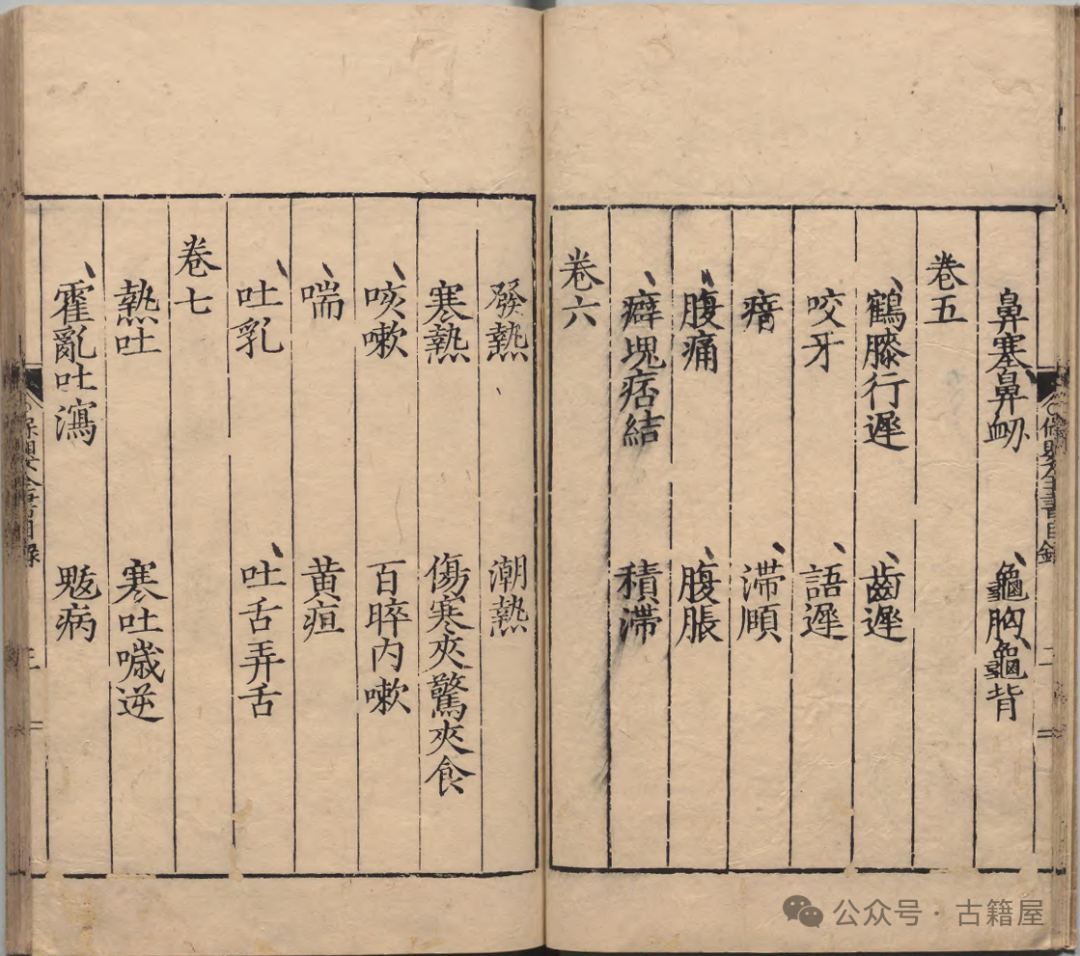 鼻塞鼻衄　龜胸龜背
卷五
鶴膝行遲　齒遲
咬牙　語遲
瘖　滯頤
腹痛　腹脹
癖塊痞結　積滯
卷六
發熱　潮熱
寒熱　傷寒夾驚夾食
咳嗽　百晬内嗽
喘　黃疸
吐乳　吐舌弄舌
卷七
熱吐　寒吐噦逆
霍亂吐瀉　魃病
保嬰全書目錄
公众号·古籍屋